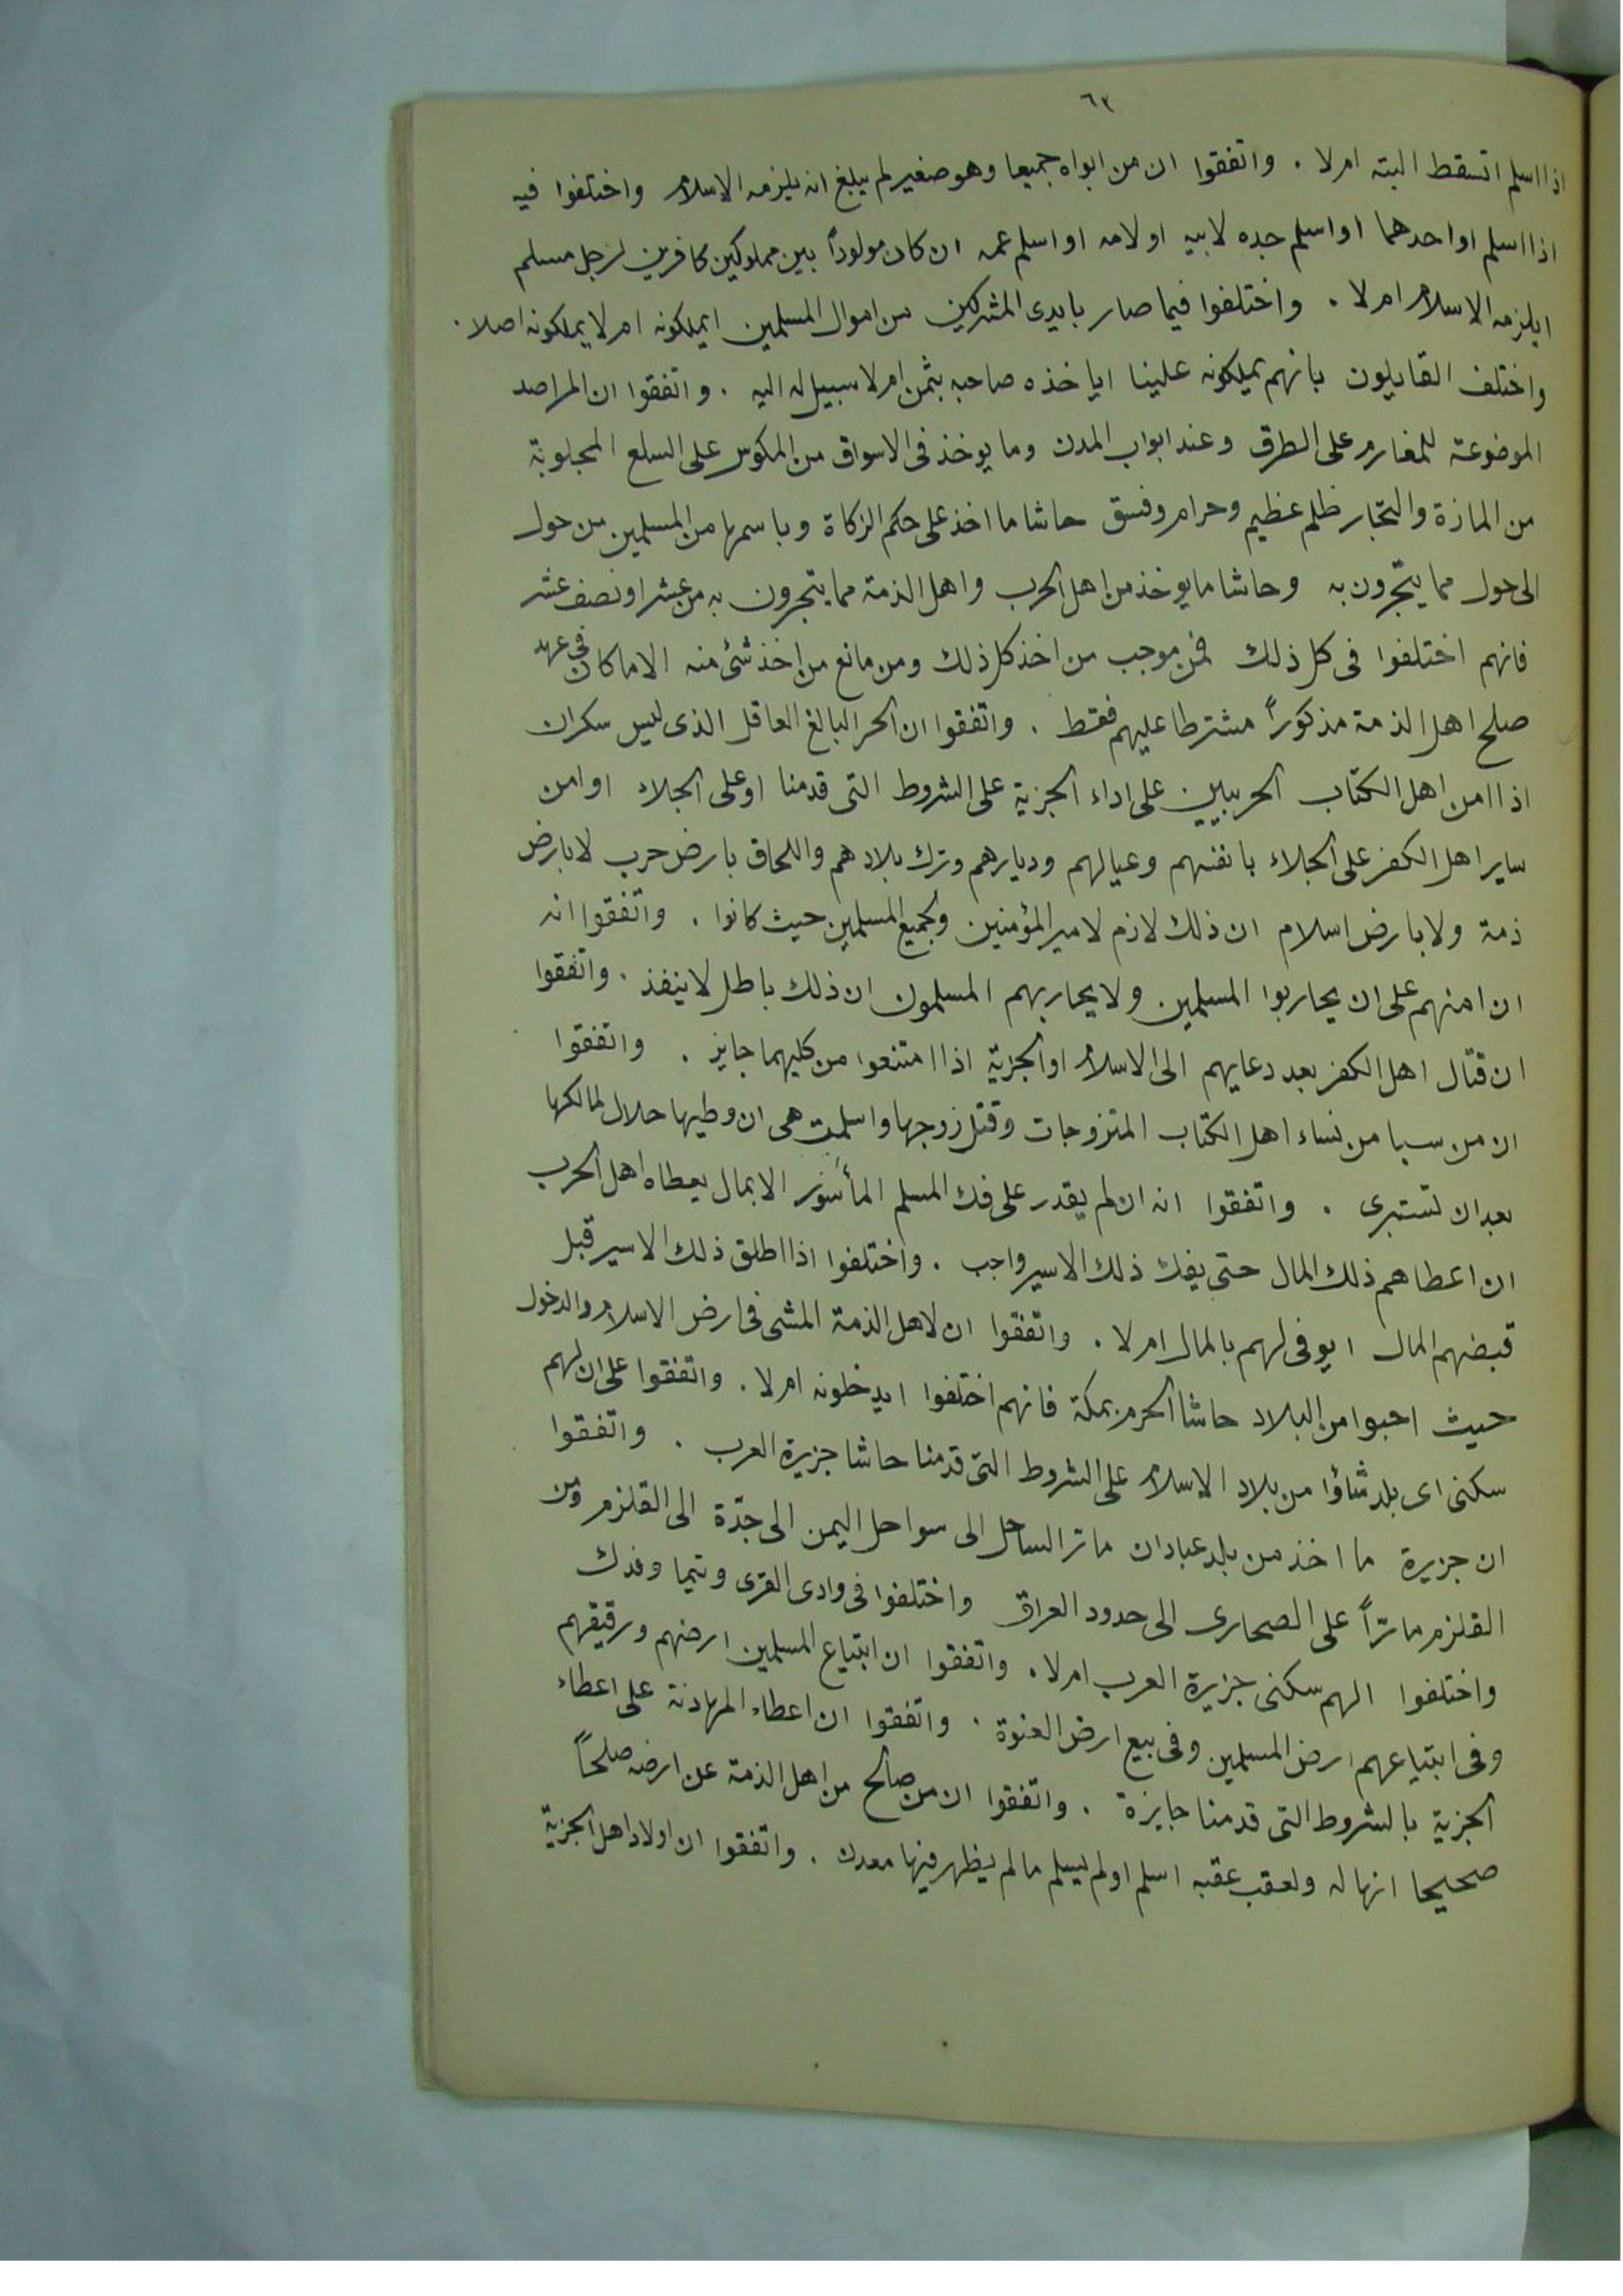 ٦٣
اذا اسلم اتسقط البته ام لا . واتفقوا ان من ابواه جميعا وهو صغير لم يبلغ انه يلزمه الاسلام واختلفوا فيه
اذا اسلم او احدهما او اسلم جده لابيه او لامه او اسلم عمه ان كان مولوداً بين مملوكين كافرين لرجل مسلم
ايلزمه الاسلام ام لا . واختلفوا فيما صار بايدى المشركين من اموال المسلمين ايملكونه ام لا يملكونه اصلا .
واختلف القايلون بانهم يملكونه علينا اياخذه صاحبه بثمن ام لا سبيل له اليه . واتفقوا ان المراصد
الموضوعة للمغارم على الطرق وعند ابواب المدن وما يوخذ فى الاسواق من المكوس على السلع المجلوبة
من المازة والتجار ظلم عظيم وحرام وفسق حاشا ما اخذ على حكم الزكاة وباسمها من المسلمين من حول
الى حول مما يتجرون به وحاشا ما يوخذ من اهل الحرب واهل الذمة مما يتجرون به من عشر او نصف عشر
فانهم اختلفوا فى كل ذلك فمن موجب من اخذ كل ذلك ومن مانع من اخذ شئ منه الا ما كان فى عهد
صلح اهل الذمة مذكوراً مشترطا عليهم فقط . واتفقوا ان الحر البالغ العاقل الذى ليس سكران
اذا امن اهل الكتاب الحربيين على اداء الجزية على الشروط التى قدمنا او على الجلاء او امن
ساير اهل الكفر على الجلاء بانفسهم وعيالهم وديارهم وترك بلادهم واللحاق بارض حرب لا بارض
ذمة ولا بارض اسلام ان ذلك لازم لامير المؤمنين ولجميع المسلمين حيث كانوا . واتفقوا انه
ان امنهم على ان يحاربوا المسلمين ولا يحاربهم المسلمون ان ذلك باطل لا ينفذ . واتفقوا
ان قتال اهل الكفر بعد دعايهم الى الاسلام او الجزية اذا امتنعوا من كليهما جايز . واتفقوا
ان من سبا من نساء اهل الكتاب المتزوجات وقتل زوجها واسلمت هى ان وطيها حلال لمالكها
بعد ان تستبرى . واتفقوا انه ان لم يقدر على فك المسلم المأسور الا بمال يعطاه اهل الحرب
ان اعطاهم ذلك المال حتى يفك ذلك الاسير واجب . واختلفوا اذا اطلق ذلك الاسير قبل
قبضهم المال ايوفى لهم بالمال ام لا . واتفقوا ان لاهل الذمة المشى فى ارض الاسلام والدخول
حيث احبوا من البلاد حاشا الحرم بمكة فانهم اختلفوا ايدخلونه ام لا . واتفقوا على ان لهم
سكنى اى بلد شاؤا من بلاد الاسلام على الشروط التى قدمنا حاشا جزيرة العرب . واتفقوا
ان جزيرة ما اخذ من بلد عبادان مارّ الساحل الى سواحل اليمن الى جدّة الى القلزم ومن
القلزم مارّاً على الصحارى الى حدود العراق واختلفوا فى وادى القرى وتيما وفدك
واختلفوا الهم سكنى جزيرة العرب ام لا . واتفقوا ان ابتياع المسلمين ارضهم ورقيقهم
وفى ابتياعهم ارض المسلمين وفى بيع ارض العنوة . واتفقوا ان اعطاء المهادنة على اعطاء
الجزية بالشروط التى قدمنا جايزة . واتفقوا ان من صالح من اهل الذمة عن ارضه صلحاً
صحيحا انها له ولعقب عقبه اسلم او لم يسلم ما لم يظهر فيها معدن . واتفقوا ان اولاد اهل الجزية